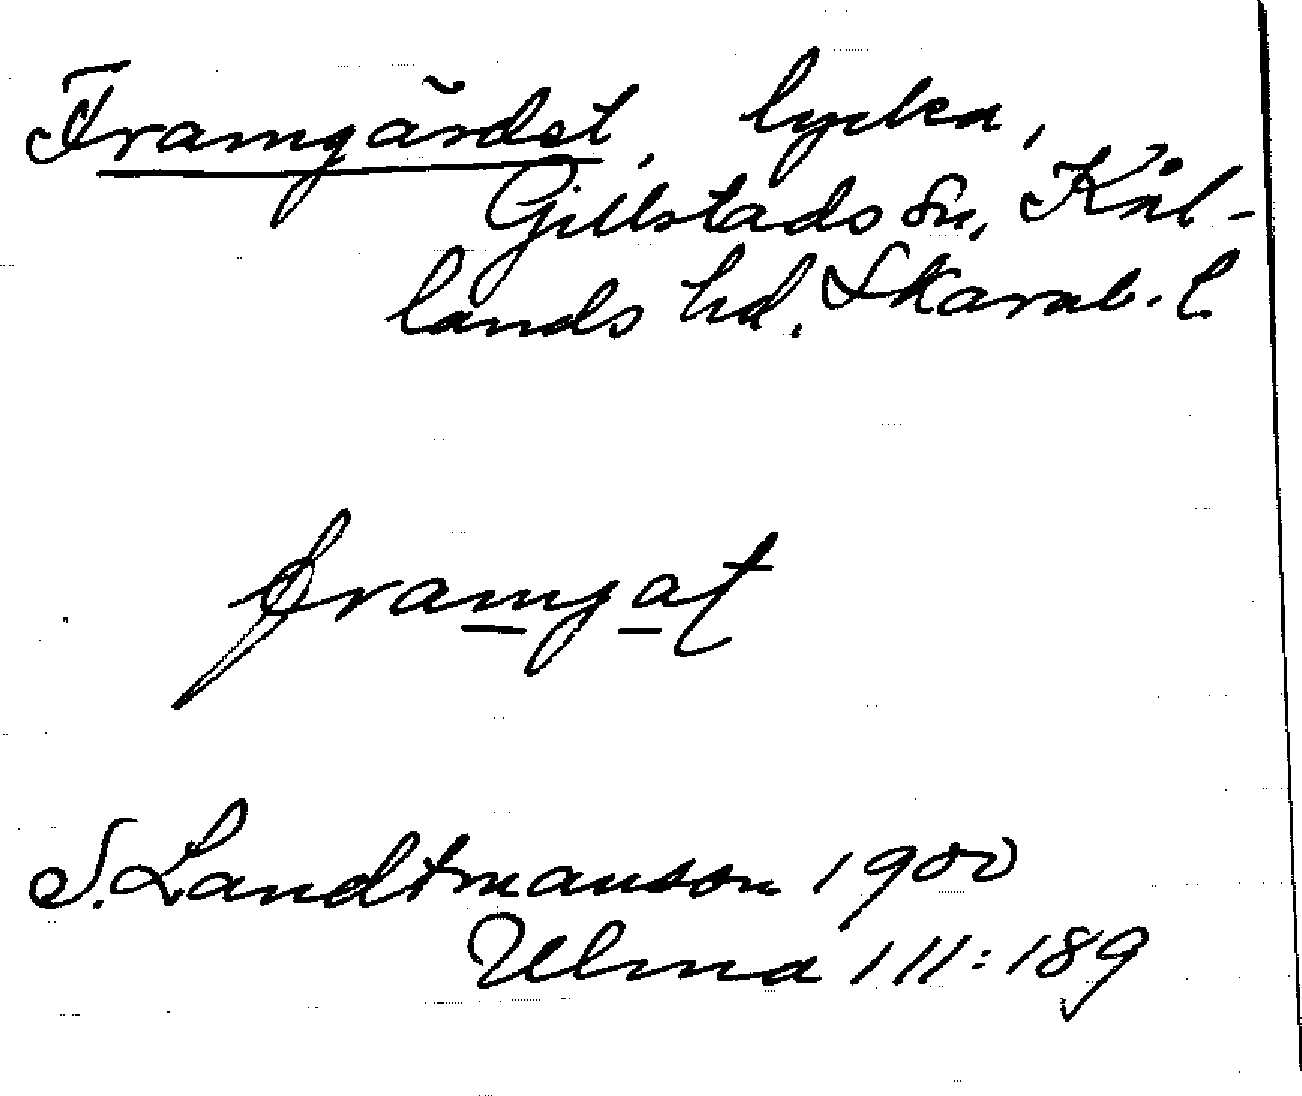 Framgärdet, lycka,
Gillstads sn, Kål-
lands hd. Skarab. l.
framgat
S. Landtmanson 1900
Ulma 111:189